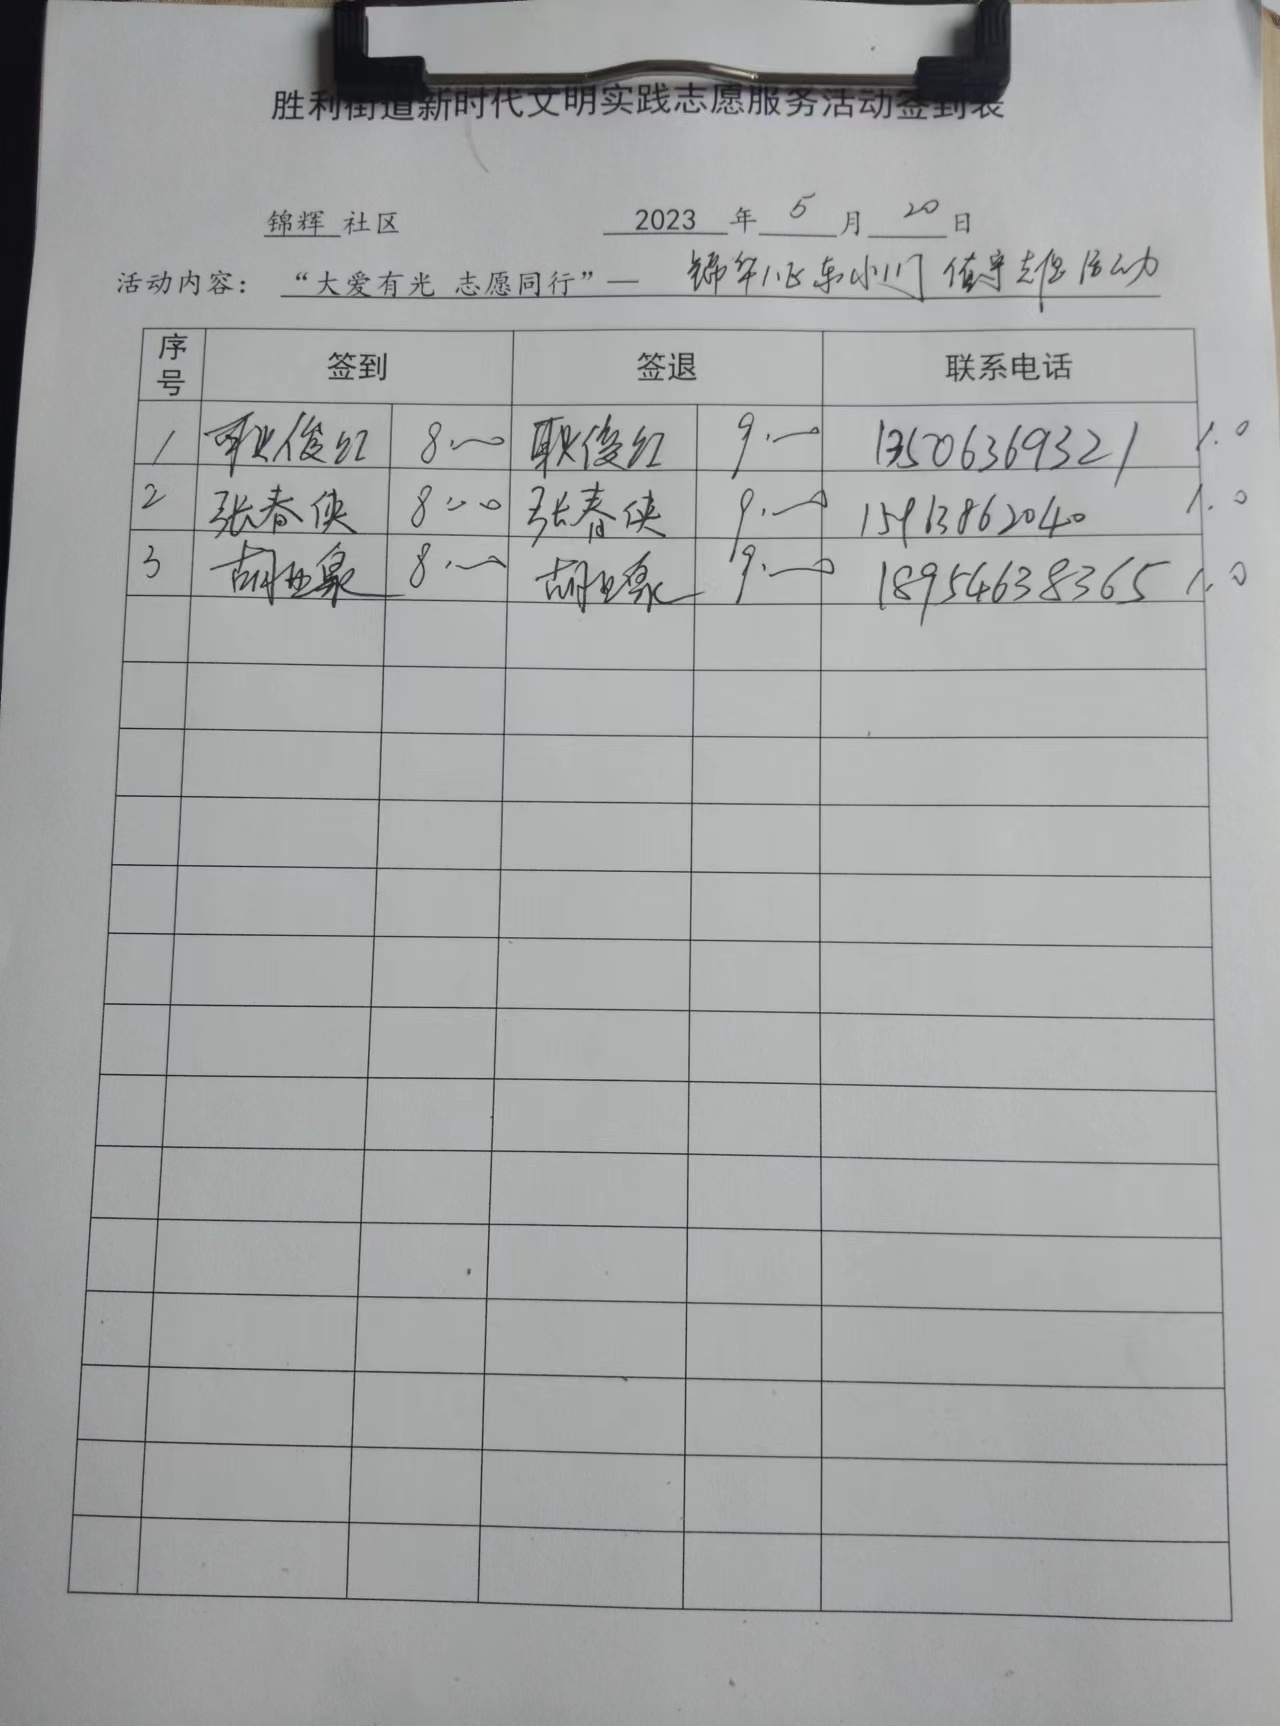 胜利街道新时代文明实践志愿服务活动签到表
锦辉 社区 2023 年 5 月 20 日
活动内容： “大爱有光 志愿同行”— 锦华八区东小门 值守志愿活动
序号 签到 签退 联系电话
1 耿俊红 8:00 耿俊红 9:00 13506369321 1.0
2 张春侠 8:00 张春侠 9:00 15963862040 1.0
3 胡 泉 8:00 胡 泉 9:00 18954638365 1.0